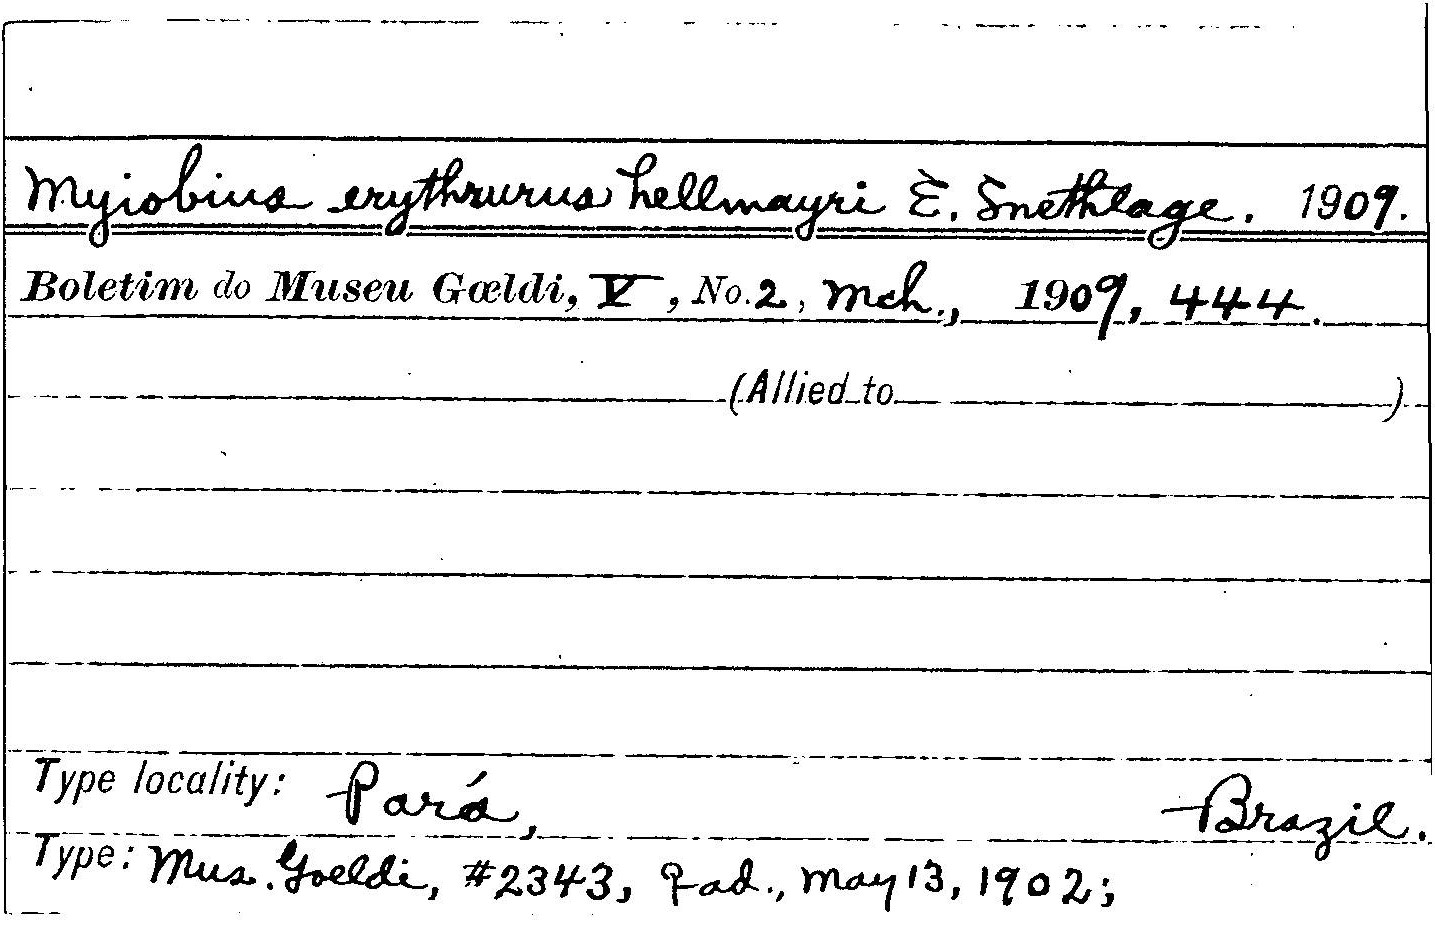 Myiobius erythrurus hellmayri E. Snethlage. 1909.
Boletim do Museu Gœldi, V, No. 2, Mch., 1909, 444.
(Allied to )
Type locality: Pará, Brazil.
Type: Mus. Goeldi, #2343, ♀ ad., May 13, 1902;